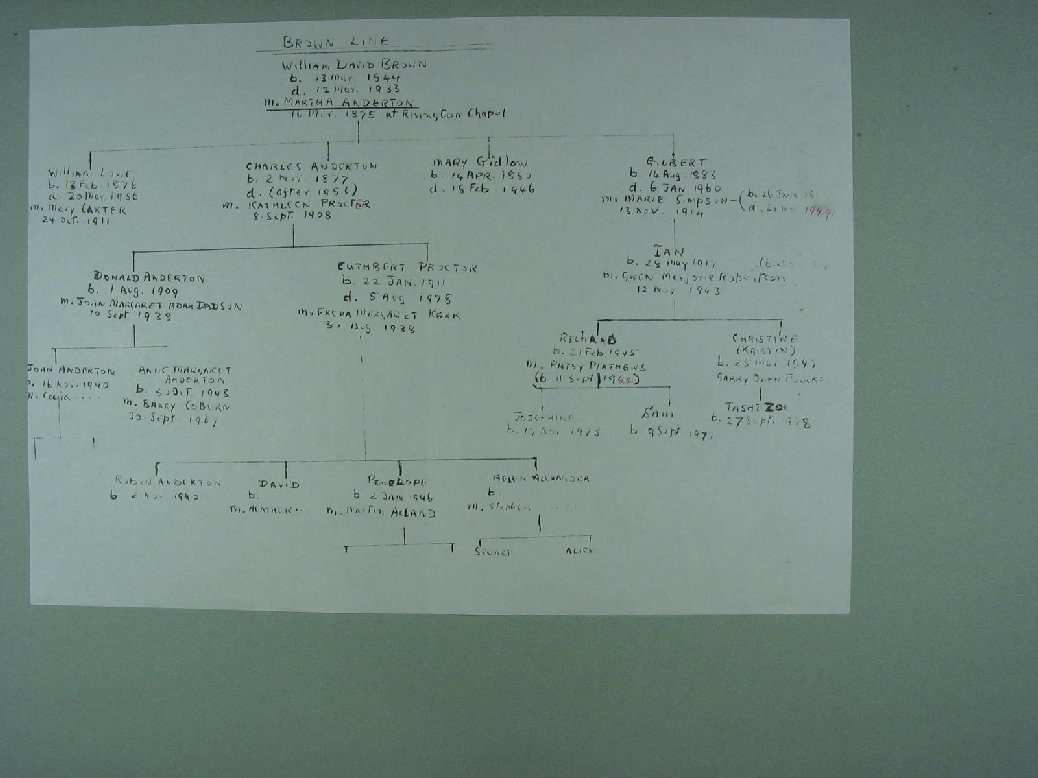 BROWN LINE
WILLIAM DAVID BROWN
b. 13 Mar. 1844
d. 12 Mar. 1933
m. MARTHA ANDERTON
16 Mar. 1875 at Rivington Chapel
William Lowe
b. 18 Feb. 1876
d. 20 Nov. 1956
m. Mary CARTER
24 Oct. 1911
CHARLES ANDERTON
b. 2 Nov. 1877
d. (after 1956)
m. KATHLEEN PROCTER
8 Sept 1908
MARY Gidlow
b. 14 APR. 1880
d. 18 Feb 1946
GILBERT
b. 14 Aug 1883
d. 6 JAN 1960
m. MARIE SIMPSON
13 NOV. 1914
b. 26 June
DONALD ANDERTON
b. 1 Aug. 1909
m. JOAN MARGARET DADSON
10 Sept 1938
CUTHBERT PROCTOR
b. 22 JAN. 1911
d. 5 Aug 1978
m. FREDA MARGARET KERR
Aug 1938
IAN
b. 28 May 1917
m. GWEN Marjorie Robertson
12 Nov 1943
JOHN ANDERTON
b. 16 Nov. 1940
m.
ANNE MARGARET
ANDERTON
b. 1943
m. BARRY COBURN
30 Sept 1967
RICHARD
b. 21 Feb 1945
m. PATSY MATHEWS
(b. 11 Sept 1942)
CHRISTINE
(KRISTIN)
b. 25 Mar 1947
GARRY OWEN
JOSEPHINE
b. 17 Nov 1975
SAM
b. 9 Sept 1977
TASHI ZOE
b. 27 Sept 1978
ROBIN ANDERTON
b 2 Nov 1940
DAVID
b.
m. HEATHER...
PENELOPE
b 2 JAN 1946
m. Martin ACLAND
HELEN ALEXANDRA
b.
m. Stephen
STUART
ALICE